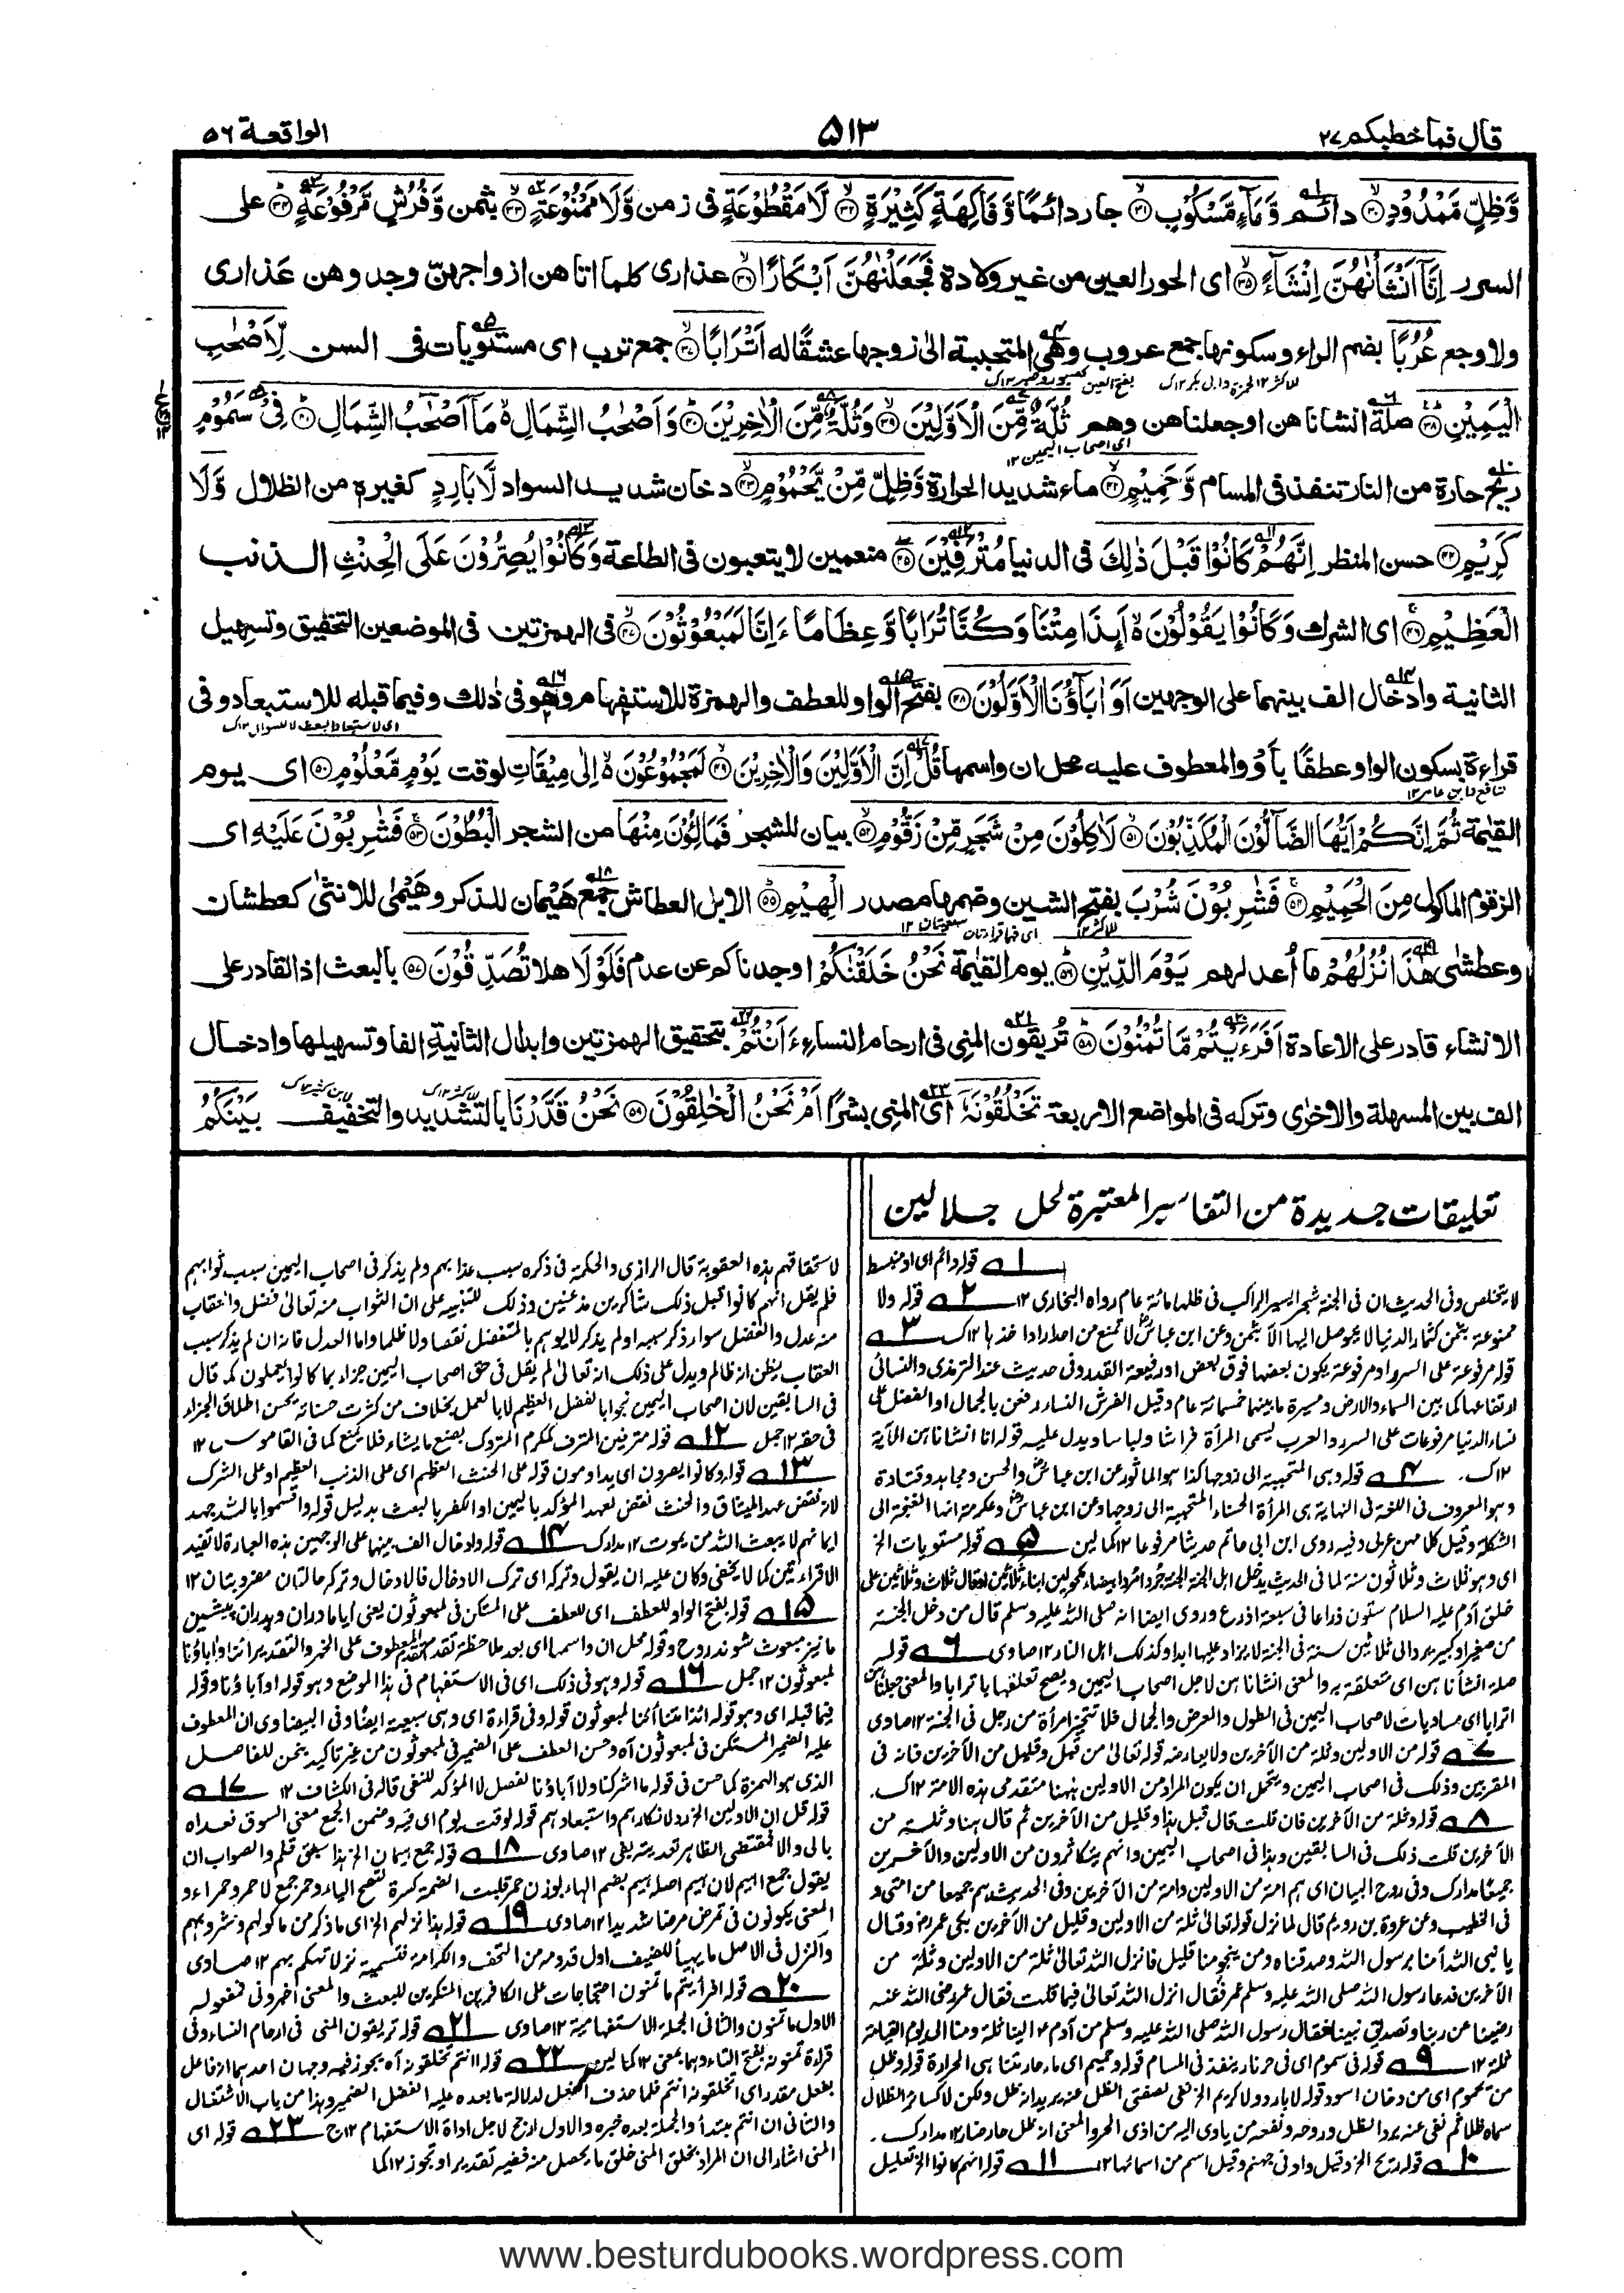 قال فما خطبكم ٢٧
٥١٣
الواقعة ٥٦
وَّظِلٍّ مَّمْدُوْدٍ ﴿٣٠﴾ دائم وَّمَآءٍ مَّسْكُوْبٍ ﴿٣١﴾ جار دائمًا وَّفَاكِهَةٍ كَثِيْرَةٍ ﴿٣٢﴾ لَّا مَقْطُوْعَةٍ فى زمن وَّلَا مَمْنُوْعَةٍ ﴿٣٣﴾ بثمن وَّفُرُشٍ مَّرْفُوْعَةٍ ﴿٣٤﴾ على
السرر اِنَّآ اَنْشَاْنٰهُنَّ اِنْشَآءً ﴿٣٥﴾ اى الحور العين من غير ولادة فَجَعَلْنٰهُنَّ اَبْكَارًا ﴿٣٦﴾ عذارى كلما اتاهن ازواجهنّ وجدوهن عَذارى
ولا وجع عُرُبًا بضم الراء وسكونها جمع عروب وهى المتحببة الى زوجها عشقًا له اَتْرَابًا ﴿٣٧﴾ جمع ترب اى مستويات فى السن لِّاَصْحٰبِ
الْيَمِيْنِ ﴿٣٨﴾ صلة انشاناهن او جعلناهن وهم ثُلَّةٌ مِّنَ الْاَوَّلِيْنَ ﴿٣٩﴾ وَثُلَّةٌ مِّنَ الْاٰخِرِيْنَ ﴿٤٠﴾ وَاَصْحٰبُ الشِّمَالِ مَآ اَصْحٰبُ الشِّمَالِ ﴿٤١﴾ فِىْ سَمُوْمٍ
اى اصحاب اليمين ١٢
ريح حارة من النار تنفذ فى المسام وَّحَمِيْمٍ ﴿٤٢﴾ ماء شديد الحرارة وَّظِلٍّ مِّنْ يَّحْمُوْمٍ ﴿٤٣﴾ دخان شديد السواد لَّا بَارِدٍ كغيره من الظلال وَّلَا
كَرِيْمٍ ﴿٤٤﴾ حسن المنظر اِنَّهُمْ كَانُوْا قَبْلَ ذٰلِكَ فى الدنيا مُتْرَفِيْنَ ﴿٤٥﴾ منعمين لا يتعبون فى الطاعة وَكَانُوْا يُصِرُّوْنَ عَلَى الْحِنْثِ الذنب
الْعَظِيْمِ ﴿٤٦﴾ اى الشرك وَكَانُوْا يَقُوْلُوْنَ اَئِذَا مِتْنَا وَكُنَّا تُرَابًا وَّعِظَامًا ءَاِنَّا لَمَبْعُوْثُوْنَ ﴿٤٧﴾ فى الهمزتين فى الموضعين التحقيق وتسهيل
الثانية وادخال الف بينهما على الوجهين اَوَ اٰبَآؤُنَا الْاَوَّلُوْنَ ﴿٤٨﴾ بفتح الواو للعطف والهمزة للاستفهام وهو فى ذلك وفيما قبله للاستبعاد وفى
قراءة بسكون الواو عطفًا بأو والمعطوف عليه محل ان واسمها قُلْ اِنَّ الْاَوَّلِيْنَ وَالْاٰخِرِيْنَ ﴿٤٩﴾ لَمَجْمُوْعُوْنَ اِلٰى مِيْقَاتِ لوقت يَوْمٍ مَّعْلُوْمٍ ﴿٥٠﴾ اى يوم
نافع وابن عامر ١٢
القيٰمة ثُمَّ اِنَّكُمْ اَيُّهَا الضَّآلُّوْنَ الْمُكَذِّبُوْنَ ﴿٥١﴾ لَاٰكِلُوْنَ مِنْ شَجَرٍ مِّنْ زَقُّوْمٍ ﴿٥٢﴾ بيان للشجر فَمَالِئُوْنَ مِنْهَا من الشجر الْبُطُوْنَ ﴿٥٣﴾ فَشٰرِبُوْنَ عَلَيْهِ اى
الزقوم الماكول مِنَ الْحَمِيْمِ ﴿٥٤﴾ فَشٰرِبُوْنَ شُرْبَ بفتح الشين وضمها مصدر الْهِيْمِ ﴿٥٥﴾ الابل العطاش جمع هَيْمان للذكر وهَيْمٰى للانثٰى كعطشان
وعطشى هٰذَا نُزُلُهُمْ ما اُعد لهم يَوْمَ الدِّيْنِ ﴿٥٦﴾ يوم القيٰمة نَحْنُ خَلَقْنٰكُمْ اوجدناكم عن عدم فَلَوْلَا هلا تُصَدِّقُوْنَ ﴿٥٧﴾ بالبعث اذ القادر على
الانشاء قادر على الاعادة اَفَرَءَيْتُمْ مَّا تُمْنُوْنَ ﴿٥٨﴾ تُريقون المنى فى ارحام النساء ءَاَنْتُمْ بتحقيق الهمزتين وابدال الثانية الفا وتسهيلها وادخال
الف بين المسهلة والاخرٰى وتركه فى المواضع الاربعة تَخْلُقُوْنَهٗٓ اى المنى بشرًا اَمْ نَحْنُ الْخٰلِقُوْنَ ﴿٥٩﴾ نَحْنُ قَدَّرْنَا بالتشديد والتخفيف بَيْنَكُمُ
تعليقات جديدة من التفاسير المعتبرة لحل جلالين
١ قوله دائم اى او منبسط
لا يتخلص وفى الحديث ان فى الجنة شجر يسير الراكب فى ظلها مائة عام رواه البخارى ١٢ ٢ قوله ولا
ممنوعة بثمن كثمار الدنيا لا يتوصل اليها الا بثمن وعن ابن عباس لا تمنع من احد اراد اخذها ١٢ك ٣
قوله مرفوعة على السرر او مرفوعة يكون بعضها فوق بعض او رفيعة القدر وفى حديث عند الترمذى والنسائى
ارتفاعها كما بين السماء والارض ومسيرة ما بينها خمسمائة عام وقيل الفرش النساء رفعن بالجمال او الفضل على
نساء الدنيا مرفوعات على السرر والعرب يسمى المرأة فراشا ولباسا ويدل عليه قوله انا انشاناهن الآية
١٢ك. ٤ قوله وهى المتحببة الى زوجها كذا هو الماثور عن ابن عباس والحسن ومجاهد وقتادة
وهو المعروف فى اللغة فى النهاية هى المرأة الحسناء المتحببة الى زوجها وعن ابن عباس وعكرمة انها الغنجة الى
الشكلة وقيل كلامهن عربى وفيه روى ابن ابى حاتم حديثا مرفوعا ١٢ كمالين ٥ قوله مستويات الخ
اى وهو ثلاث وثلاثون سنة لما فى الحديث يدخل اهل الجنة الجنة جردا مردا بيضا مكحولين ابناء ثلاثين او قال ثلاث وثلاثين على
خلق آدم عليه السلام ستون ذراعا فى سبعة اذرع وروى ايضا انه صلى الله عليه وسلم قال من دخل الجنة
من صغير او كبير يرد الى ثلاثين سنة فى الجنة لا يزاد عليها ابدا وكذلك اهل النار ١٢ صاوى ٦ قوله
صلة انشاناهن اى متعلقة به والمعنى انشاناهن لاجل اصحاب اليمين ويصح تعلقها باترابا والمعنى جعلناهن
اترابا اى مساويات لاصحاب اليمين فى الطول والعرض والجمال فلا تتحيز امرأة من رجل فى الجنة ١٢ صاوى
٧ قوله من الاولين وثلة من الآخرين ولا يعارضه قوله تعالى من قبل وقليل من الآخرين فانه فى
المقربين وذلك فى اصحاب اليمين ويحتمل ان يكون المراد من الاولين ههنا متقدمى هذه الامة ١٢ك.
٨ قوله وثلة من الآخرين فان قلت قال قبل هذا وقليل من الآخرين ثم قال هنا وثلة من
الآخرين قلت ذلك فى السابقين وهذا فى اصحاب اليمين وانهم يتكاثرون من الاولين والآخرين
جميعا مدارك وفى روح البيان اى هم امة من الاولين وامة من الآخرين وفى الحديث هم جميعا من امتى و
فى الخطيب وعن عروة بن رويم قال لما نزل قوله تعالى ثلة من الاولين وقليل من الآخرين بكى عمر وقال
يا نبى الله آمنا برسول الله وصدقناه ومن ينجو منا قليل فانزل الله تعالى ثلة من الاولين وثلة من
الآخرين فدعا رسول الله صلى الله عليه وسلم عمر فقال انزل الله تعالى فيما قلت فقال عمر رضى الله عنه
رضينا عن ربنا وتصديق نبينا فقال رسول الله صلى الله عليه وسلم من آدم الينا ثلة ومنا الى يوم القيامة
ثلة ١٢ ٩ قوله فى سموم اى فى حر نار ينفذ فى المسام قوله وحميم اى ماء حار متناهى الحرارة قوله وظل
من يحموم اى من دخان اسود قوله لا بارد ولا كريم الخ نفى لصفتى الظل عنه يريد انه ظل ولكن لا كسائر الظلال
سماه ظلا ثم نفى عنه برد الظل وروحه ونفعه من ياوى اليه من اذى الحر والمعنى انه ظل حار ضار ١٢ مدارك.
١٠ قوله ريح الخ وقيل واد فى جهنم وقيل اسم من اسمائها ١٢ ١١ قوله انهم كانوا الخ تعليل
لاستحقاقهم هذه العقوبة قال الرازى والحكمة فى ذكره سبب عذابهم ولم يذكر فى اصحاب اليمين سبب ثوابهم
فلم يقل انهم كانوا قبل ذلك شاكرين مذعنين وذلك للتنبيه على ان الثواب منه تعالى فضل والعقاب
منه عدل والفضل سواء ذكر سببه او لم يذكر لا يوهم بالمتفضل نقصا ولا ظلما واما العدل فانه ان لم يذكر سبب
العقاب يظن انه ظالم ويدل على ذلك انه تعالى لم يقل فى حق اصحاب اليمين جزاء بما كانوا يعملون كما قال
فى السابقين لان اصحاب اليمين نجوا بالفضل العظيم لا بالعمل بخلاف من كثرت حسناته يحسن اطلاق الجزاء
فى حقه ١٢ جمل ١٢ قوله مترفين المترف كمكرم المتروك يصنع ما يشاء فلا يمنع كما فى القاموس ١٢
١٣ قوله وكانوا يصرون اى يداومون قوله على الحنث العظيم اى على الذنب العظيم او على الشرك
لانه نقض عهد الميثاق والحنث نقض العهد المؤكد باليمين او الكفر بالبعث بدليل قوله واقسموا بالله جهد
ايمانهم لا يبعث الله من يموت ١٢ مدارك ١٤ قوله وادخال الف بينهما على الوجهين هذه العبارة لا تفيد
الا قراءتين كما لا يخفى وكان عليه ان يقول وتركه اى ترك الادخال فالادخال وتركه حالتان مضروبتان ١٢
١٥ قوله بفتح الواو للعطف اى للعطف على المستكن فى لمبعوثون يعنى آيا مادران وپدران پيشين
ما نيز مبعوث شوند روح وقوله محل ان واسمها اى بعد ملاحظة تقدم المعطوف على الخبر والتقدير ائنا او اباؤنا
لمبعوثون ١٢ جمل ١٦ قوله وهو فى ذلك اى فى الاستفهام فى هذا الموضع وهو قوله او آباؤنا وقوله
فيما قبله اى وهو قوله ائذا متنا أئنا لمبعوثون قوله وفى قراءة اى وهى سبعية ايضا وفى البيضاوى ان المعطوف
عليه الضمير المستكن فى لمبعوثون آه وحسن العطف على الضمير فى لمبعوثون من غير تاكيد بنحن للفاصل
الذى هو الهمزة كما حسن فى قوله ما اشركنا ولا آباؤنا لفصل لا المؤكد للنفى قاله فى الكشاف ١٢ ١٧
قوله قل ان الاولين الخ رد لانكارهم واستبعادهم قوله لوقت يوم اى فيه وضمن الجمع معنى السوق فعداه
بالى والا فمقتضى الظاهر تعديته بفى ١٢ صاوى ١٨ قوله جمع هيمان الخ هذا سبق قلم والصواب ان
يقول جمع اهيم لان هيم اصله هيم بضم الهاء بوزن حمر قلبت الضمة كسرة لتصح الياء وحمر جمع لاحمر وحمراء و
المعنى يكونون فى تمرض مرضا شديدا ١٢ صاوى ١٩ قوله هذا نزلهم الخ اى ما ذكر من ماكولهم ومشروبهم
والنزل فى الاصل ما يهيأ للضيف اول قدومه من التحف والكرامة فتسميته نزلا تهكم بهم ١٢ صاوى
٢٠ قوله افرأيتم ما تمنون احتجاجات على الكافرين المنكرين للبعث والمعنى اخبرونى فمفعوله
الاول ما تمنون والثانى الجملة الاستفهامية ١٢ صاوى ٢١ قوله تريقون المنى فى ارحام النساء وفى
قراءة تمنون بفتح التاء وهما بمعنى ١٢ كمالين ٢٢ قوله ءانتم تخلقونه آه يجوز فيه وجهان احدهما انه فاعل
بفعل مقدر اى اتخلقونه انتم فلما حذف الفعل لدلالة ما بعده عليه انفصل الضمير وهذا من باب الاشتغال
والثانى ان انتم مبتدأ والجملة بعده خبره والاول ارجح لاجل اداة الاستفهام ١٢ج ٢٣ قوله اى
المنى اشار الى ان المراد بخلق المنى خلق ما يحصل منه ففيه تقدير او تجوز ١٢ كما
www.besturdubooks.wordpress.com